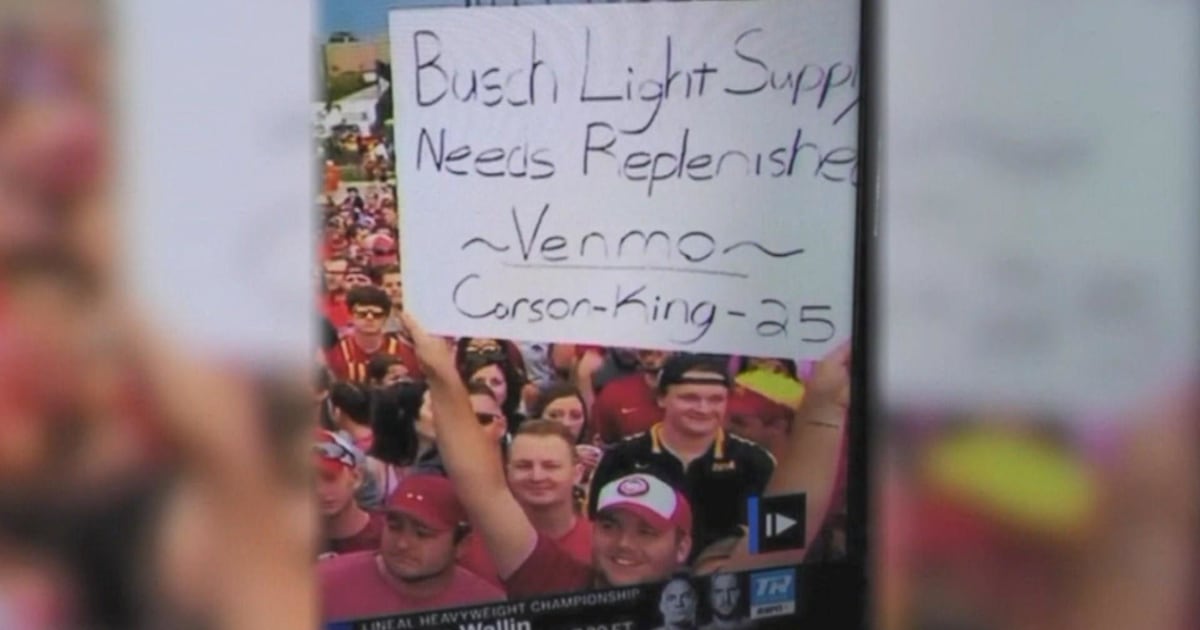 Busch Light Supply
Needs Replenished
~Venmo~
Carson-King-25
LINEAL HEAVYWEIGHT CHAMPIONSHIP
Wallin
TR
ESPN